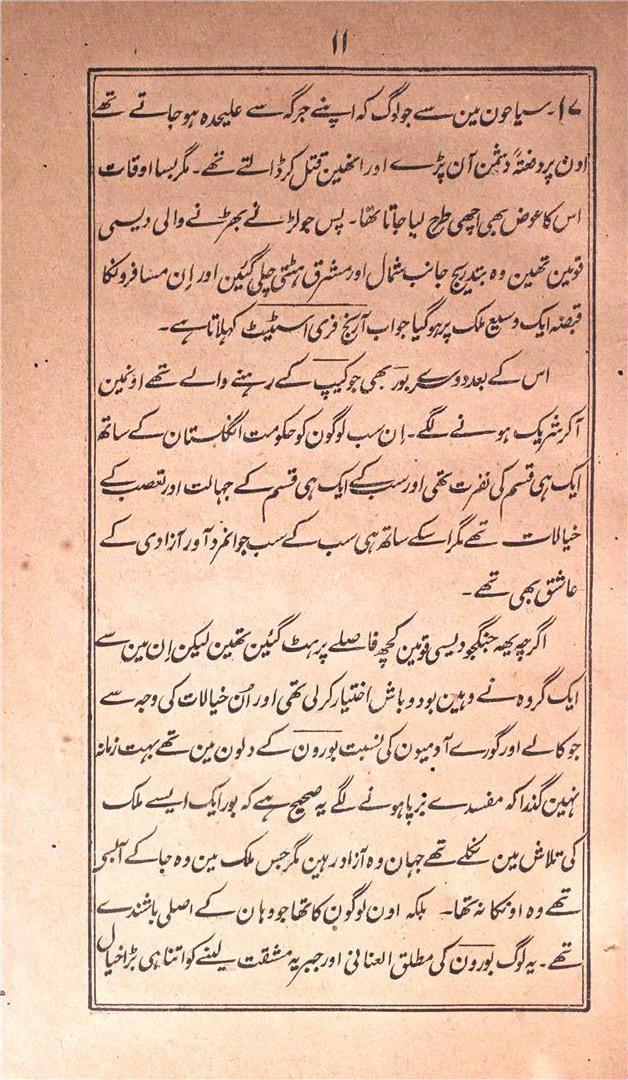 ۱۱
۱۷۔ سیاحون مین سے جو لوگ کہ اپنے جرگہ سے علیحدہ ہو جاتے تھے
اون پر دفعتہً دشمن آن پڑے اور انھین قتل کر ڈالتے تھے۔ مگر بسا اوقات
اس کا عوض بھی اچھی طرح لیا جاتا تھا۔ پس جو لڑنے بھڑنے والی دیسی
قومین تھین وہ بتدریج جانب شمال اور مشرق ہٹتی چلی گئین اور اِن مسافرونکا
قبضہ ایک وسیع ملک پر ہو گیا جو اب آرنج فری اسٹیٹ کہلاتا ہے۔
اس کے بعد دوسرے بور بھی جو کیپ کے رہنے والے تھے اونمین
آکر شریک ہونے لگے۔ اِن سب لوگون کو حکومت انگلستان کے ساتھ
ایک ہی قسم کی نفرت تھی اور سب کے ایک ہی قسم کے جہالت اور تعصب کے
خیالات تھے مگر اسکے ساتھ ہی سب کے سب جوانمرد آور آزادی کے
عاشق بھی تھے۔
اگرچہ یھہ جنگجو دیسی قومین کچھ فاصلے پر ہٹ گئین تھین لیکن اِن مین سے
ایک گروہ نے وہین بود و باش اختیار کر لی تھی اور اُن خیالات کی وجہ سے
جو کالے اور گورے آدمیون کی نسبت بورون کے دلون مین تھے بہت زمانہ
نہین گذرا کہ مفسدے برپا ہونے لگے یہ صحیح ہے کہ بور ایک ایسے ملک
کی تلاش مین نکلے تھے جہان وہ آزاد رہین مگر جس ملک مین وہ جا کے آبسی
تھے وہ اونکا نہ تھا۔ بلکہ اون لوگون کا تھا جو وہان کے اصلی باشندے
تھے۔ یہ لوگ بورون کی مطلق العنانی اور جبریہ مشقت لینے کو اتنا ہی بڑا خیال